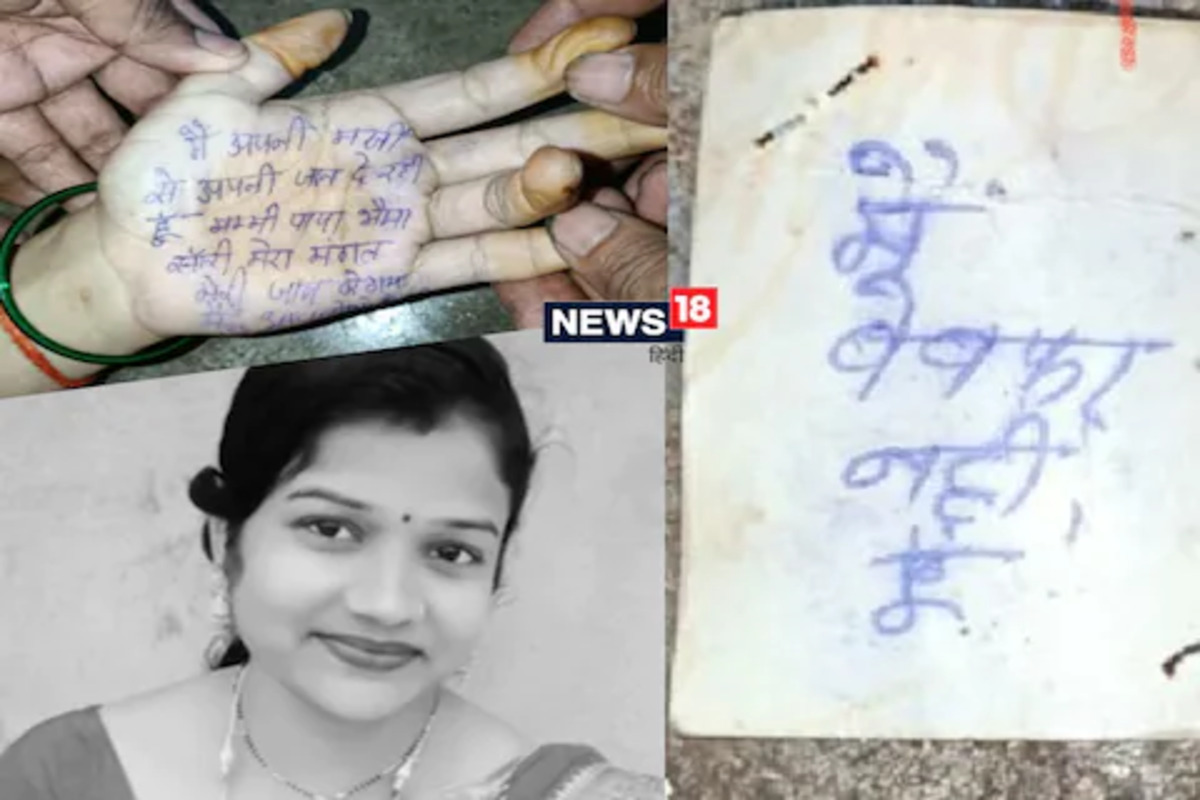 मै अपनी मर्जी
से अपनी जान दे रही
हूँ मम्मी पापा भैया
सॉरी मेरा मंगल
मेरी जान
NEWS 18
हिन्दी
मैं
बेवफा
नहीं
हूँ